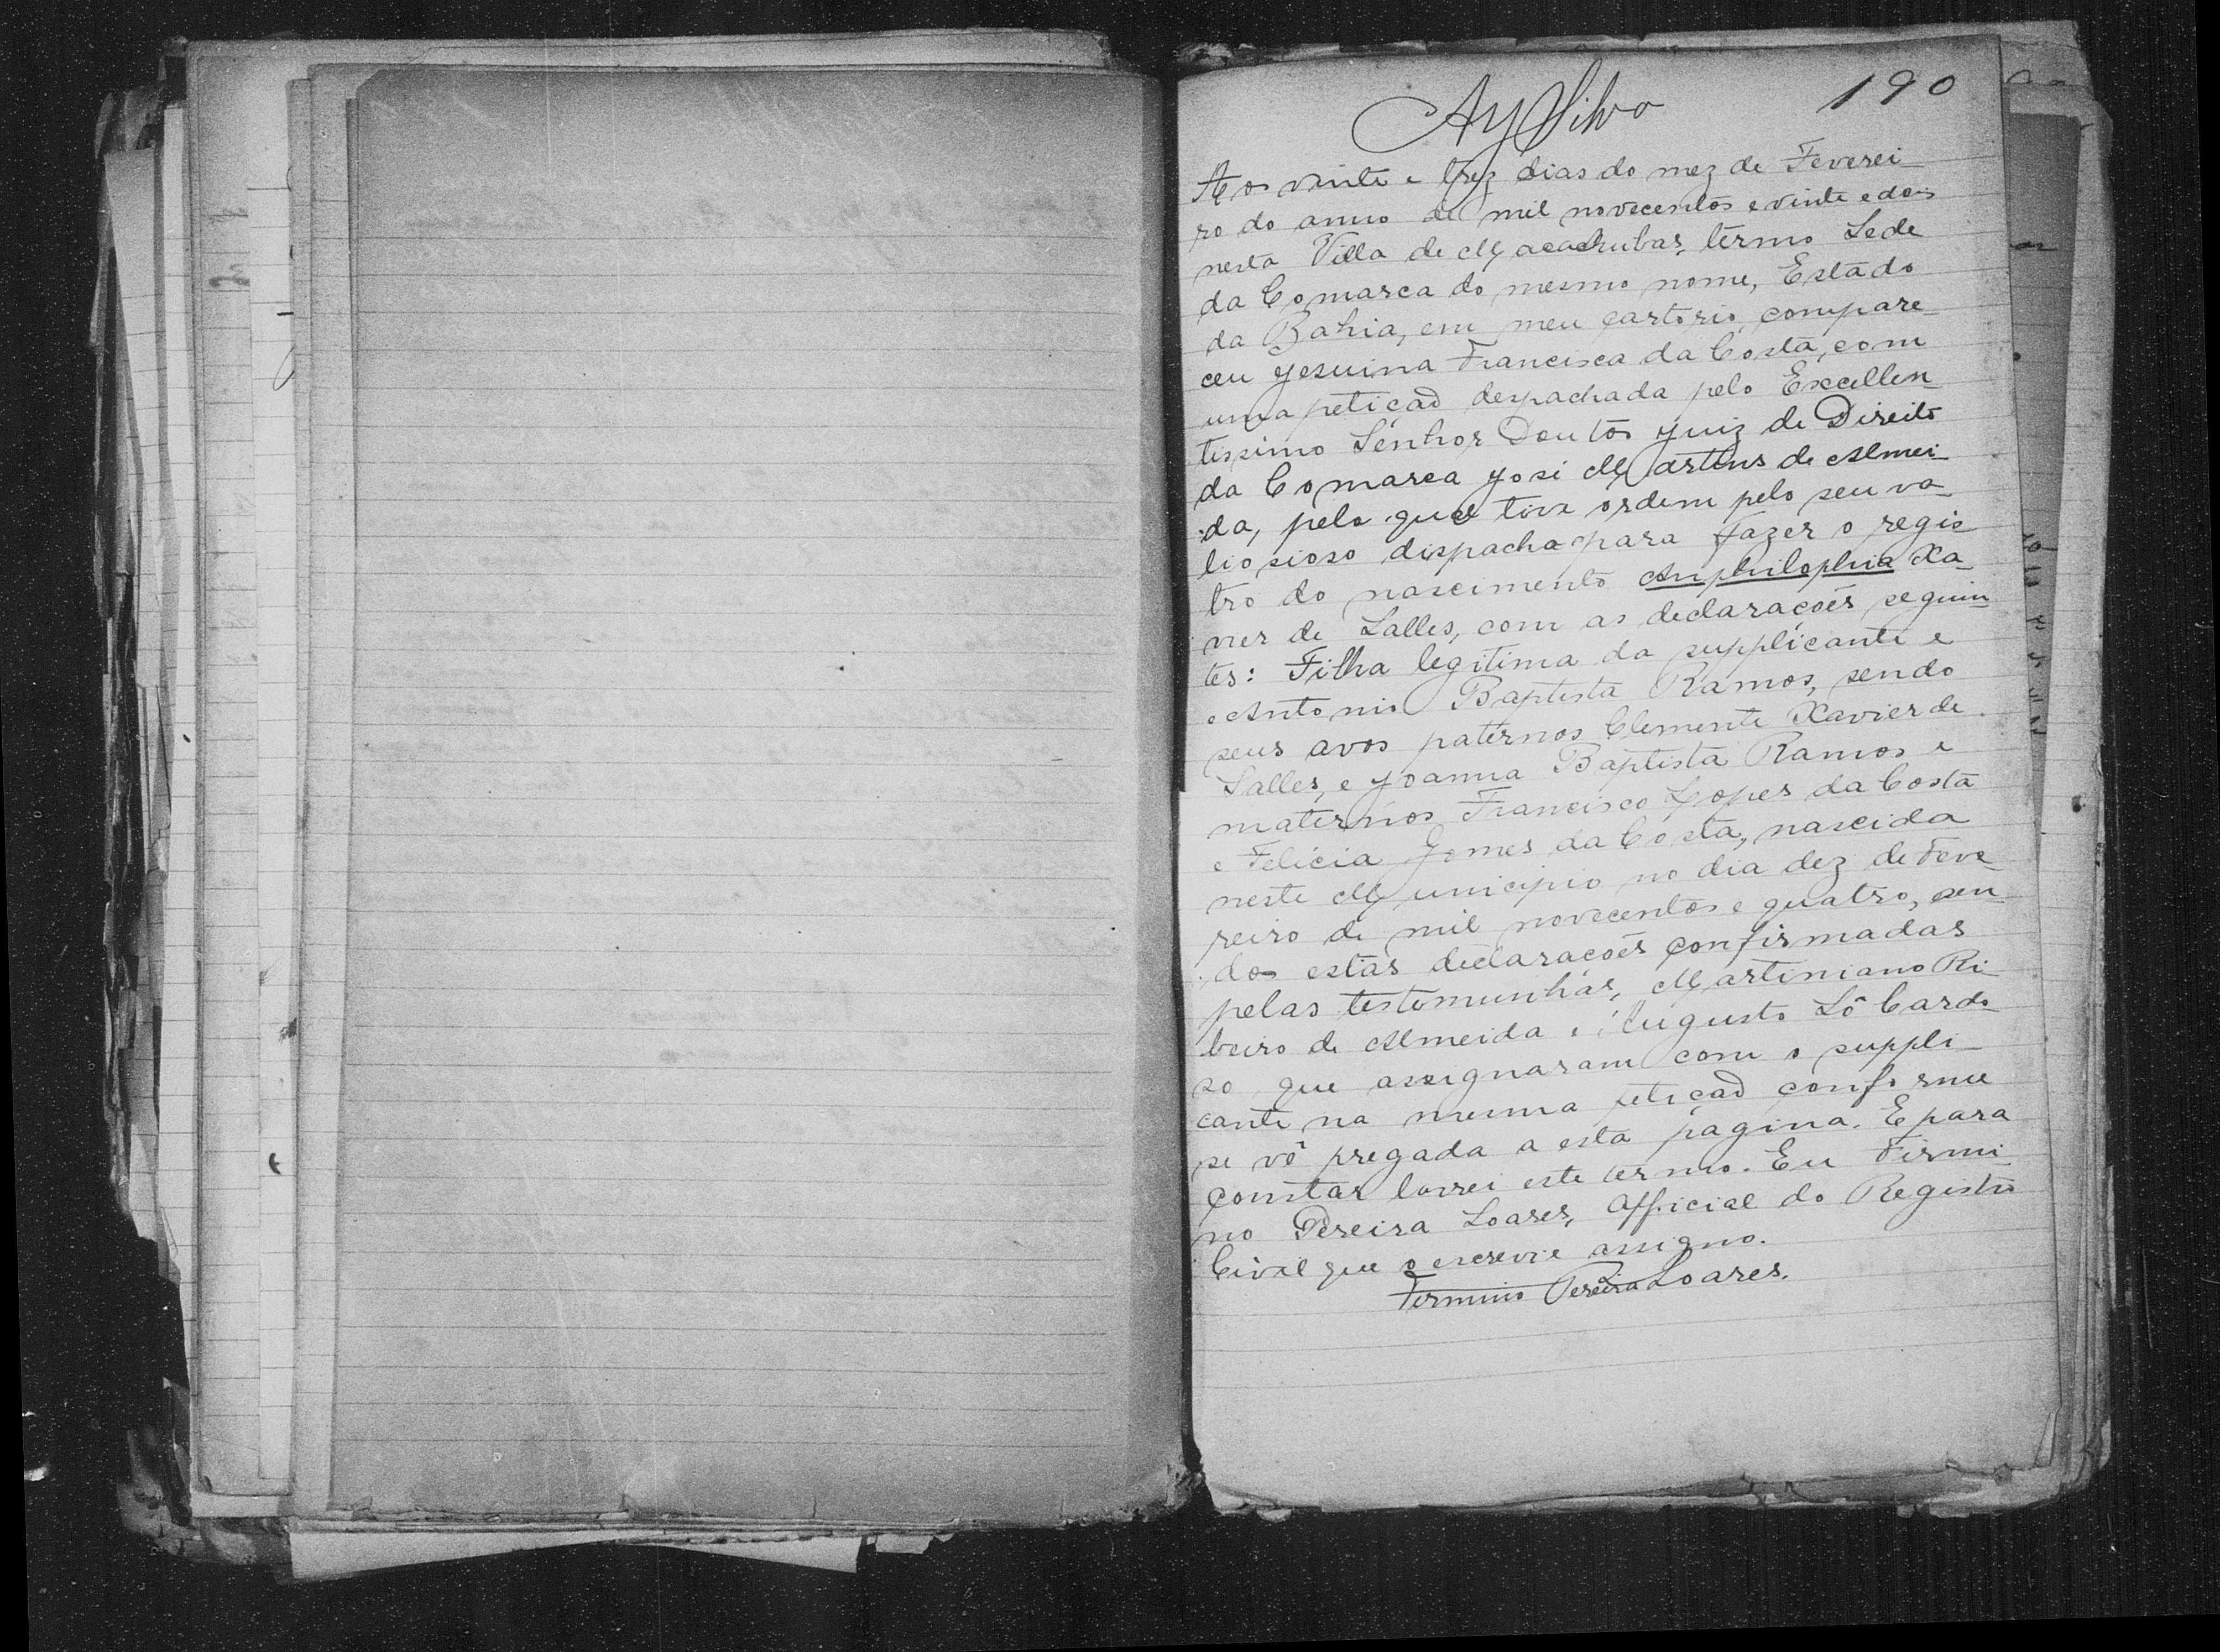 AySilva
190
Aos vinte e trez dias do mez de Feverei
ro do anno de mil novecentos e vinte e dois
nesta Villa de Macahubas, termo Sede
da Comarca do mesmo nome, Estado
da Bahia, em meu cartorio, compare
ceu Jesuina Francisca da Costa, com
uma petição despachada pelo Excellen
tissimo Senhor Doutor Juiz de Direito
da Comarca José Martins de Almei
da, pelo qual tive ordem pelo seu va
liosioso dispacha para fazer o regis
tro do nascimento Anphilophia Xa
vier de Salles, com as declarações seguin
tes: Filha legitima da supplicante e
Antonio Baptista Ramos, sendo
seus avos paternos Clemente Xavier de
Salles, e Joanna Baptista Ramos e
maternos Francisco Lopes da Costa
e Felicia Gomes da Costa, nascida
neste Municipio no dia dez de Feve
reiro de mil novecentos e quatro, sen
do estas declarações confirmadas
pelas testemunhas, Martiniano Ri
beiro de Almeida e Augusto Sô Cardo
so que assignaram com o suppli
cante na mesma petição conforme
se vê pregada a esta página. E para
constar lavrei este termo. Eu Firmi
no Pereira Soares, Official do Registro
Civil que o escrevi e assigno.
Firmino Pereira Soares.